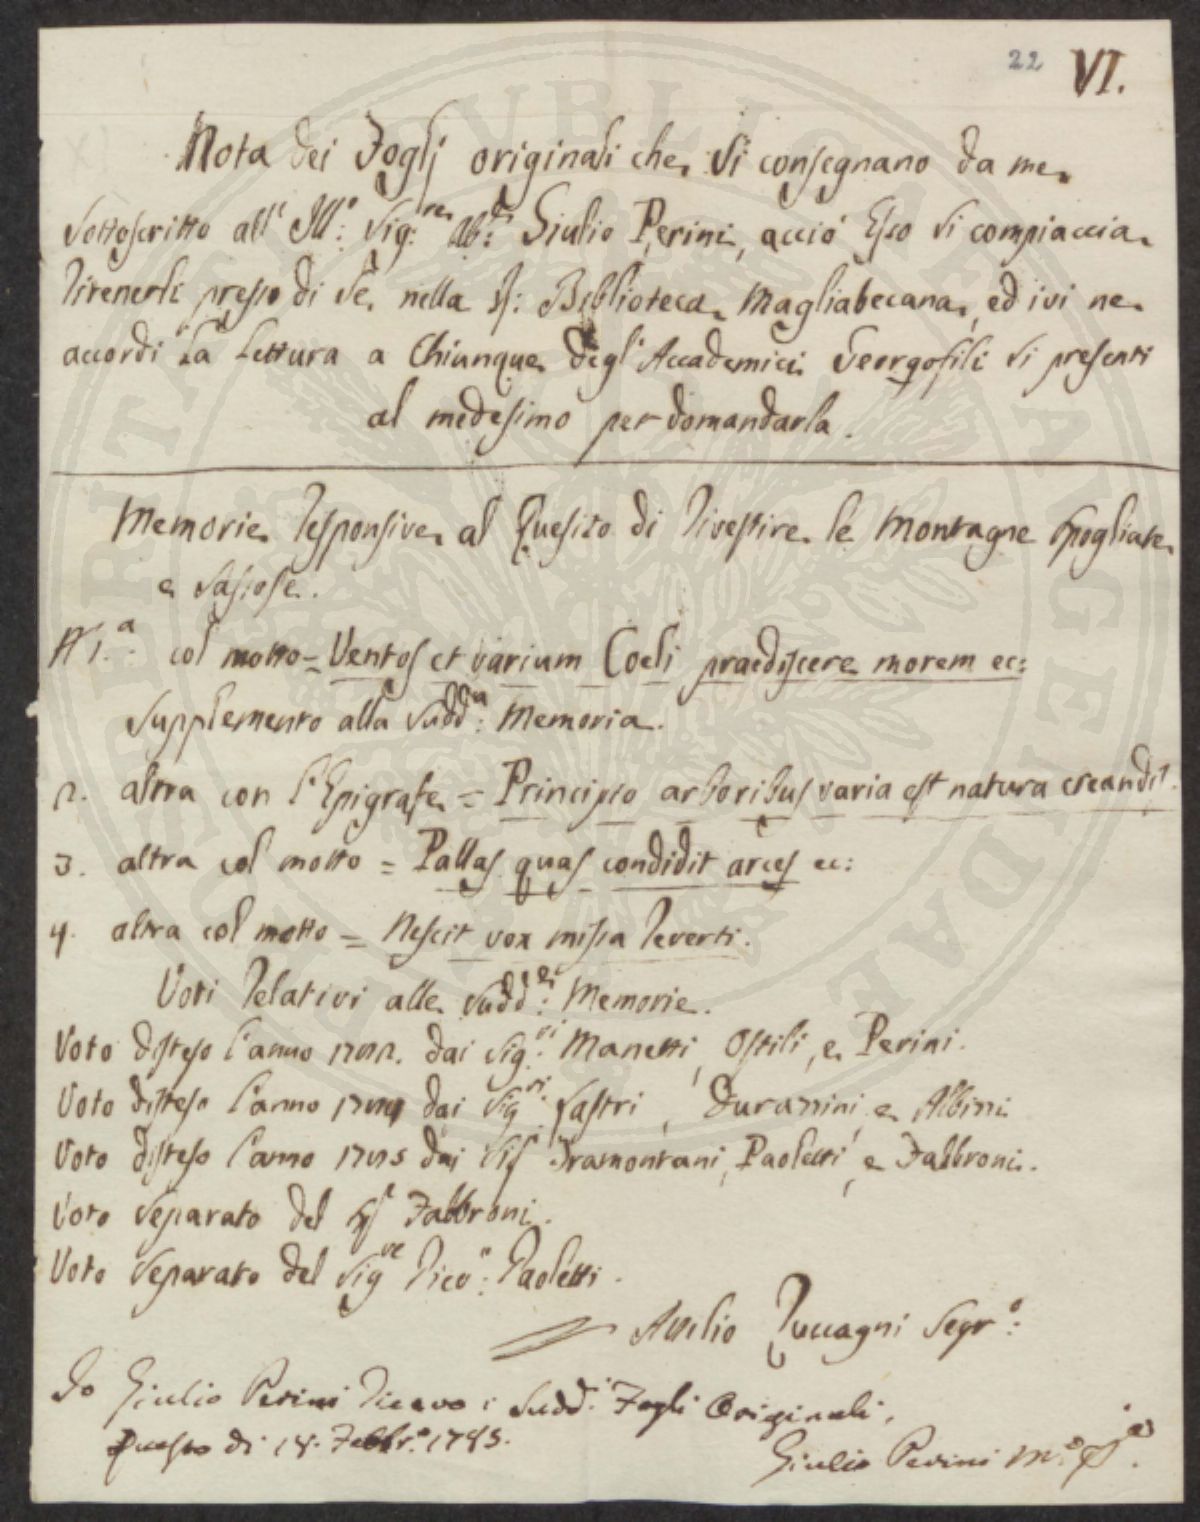 22 VI.
Nota dei Foglj originali che si consegnano da me
sottoscritto all' Ill:º Sig:re Ab:e Giulio Perini, acciò Esso si compiaccia
ritenerli presso di se nella R: Biblioteca Magliabecana, ed ivi ne
accordi la lettura a chiunque degl' Accademici Georgofili si presenti
al medesimo per domandarla.
Memorie responsive al Quesito di rivestire le Montagne spogliate
e sassose.
N 1.a col motto = Ventos et varium Coeli praediscere morem ec:
Supplemento alla sudd:a Memoria.
2. altra con l'Epigrafe = Principio arboribus varia est natura creandis.
3. altra col motto = Pallas quas condidit arces ec:
4. altra col motto = Nescit vox missa reverti.
Voti relativi alle sudd:e Memorie.
Voto disteso l'anno dai Sig:ri Manetti, Ostili, e Perini.
Voto disteso l'anno dai Sig:ri Sastri, e Albini
Voto disteso l'anno 1785 dai Sig Tramontani, Paoletti, e Fabbroni.
Voto separato del Sig Fabbroni.
Voto separato del Sig:re Piev:º Paoletti.
Attilio Zuccagni Segr:º
Io Giulio Perini ricevo i sudd:i Fogli Originali,
questo di 18. Febbr:º 1785.
Giulio Perini m:º p:ª